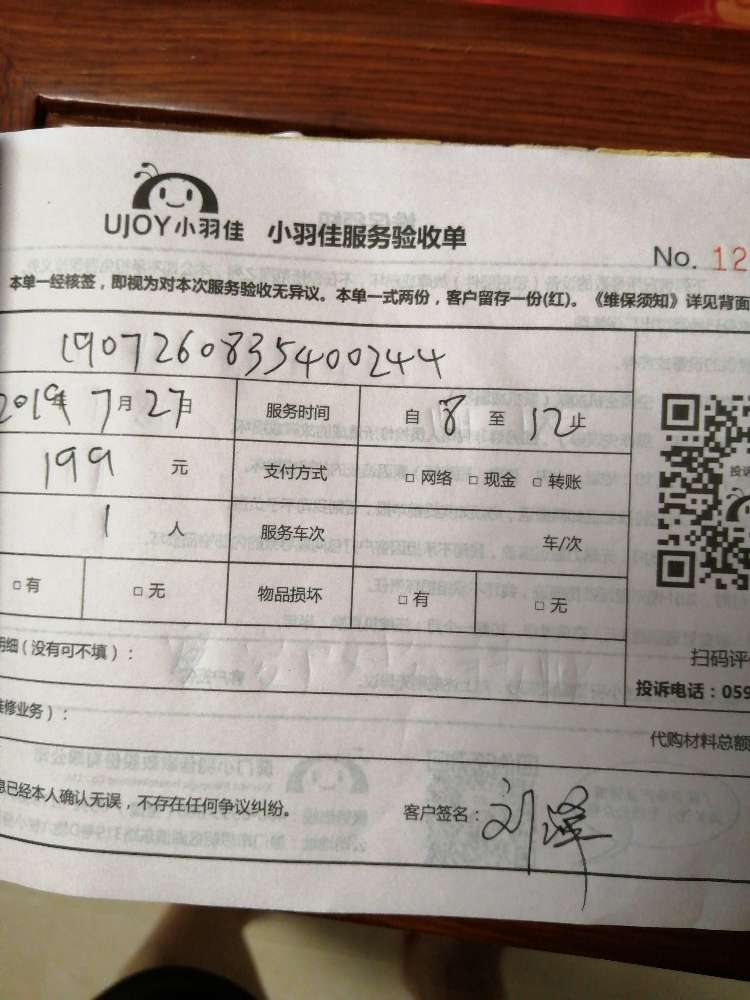 UJOY小羽佳 小羽佳服务验收单
No. 12
本单一经核签，即视为对本次服务验收无异议。本单一式两份，客户留存一份(红)。《维保须知》详见背面
1907260835400244
2019年 7月27日 服务时间 自 8 至 12止
199 元 支付方式 □ 网络 □ 现金 □ 转账
1 人 服务车次 车/次
□ 有 □ 无 物品损坏 □ 有 □ 无
投诉
明细（没有可不填）：
扫码评
投诉电话：059
维修业务）：
代购材料总额
息已经本人确认无误，不存在任何争议纠纷。 客户签名：刘泽